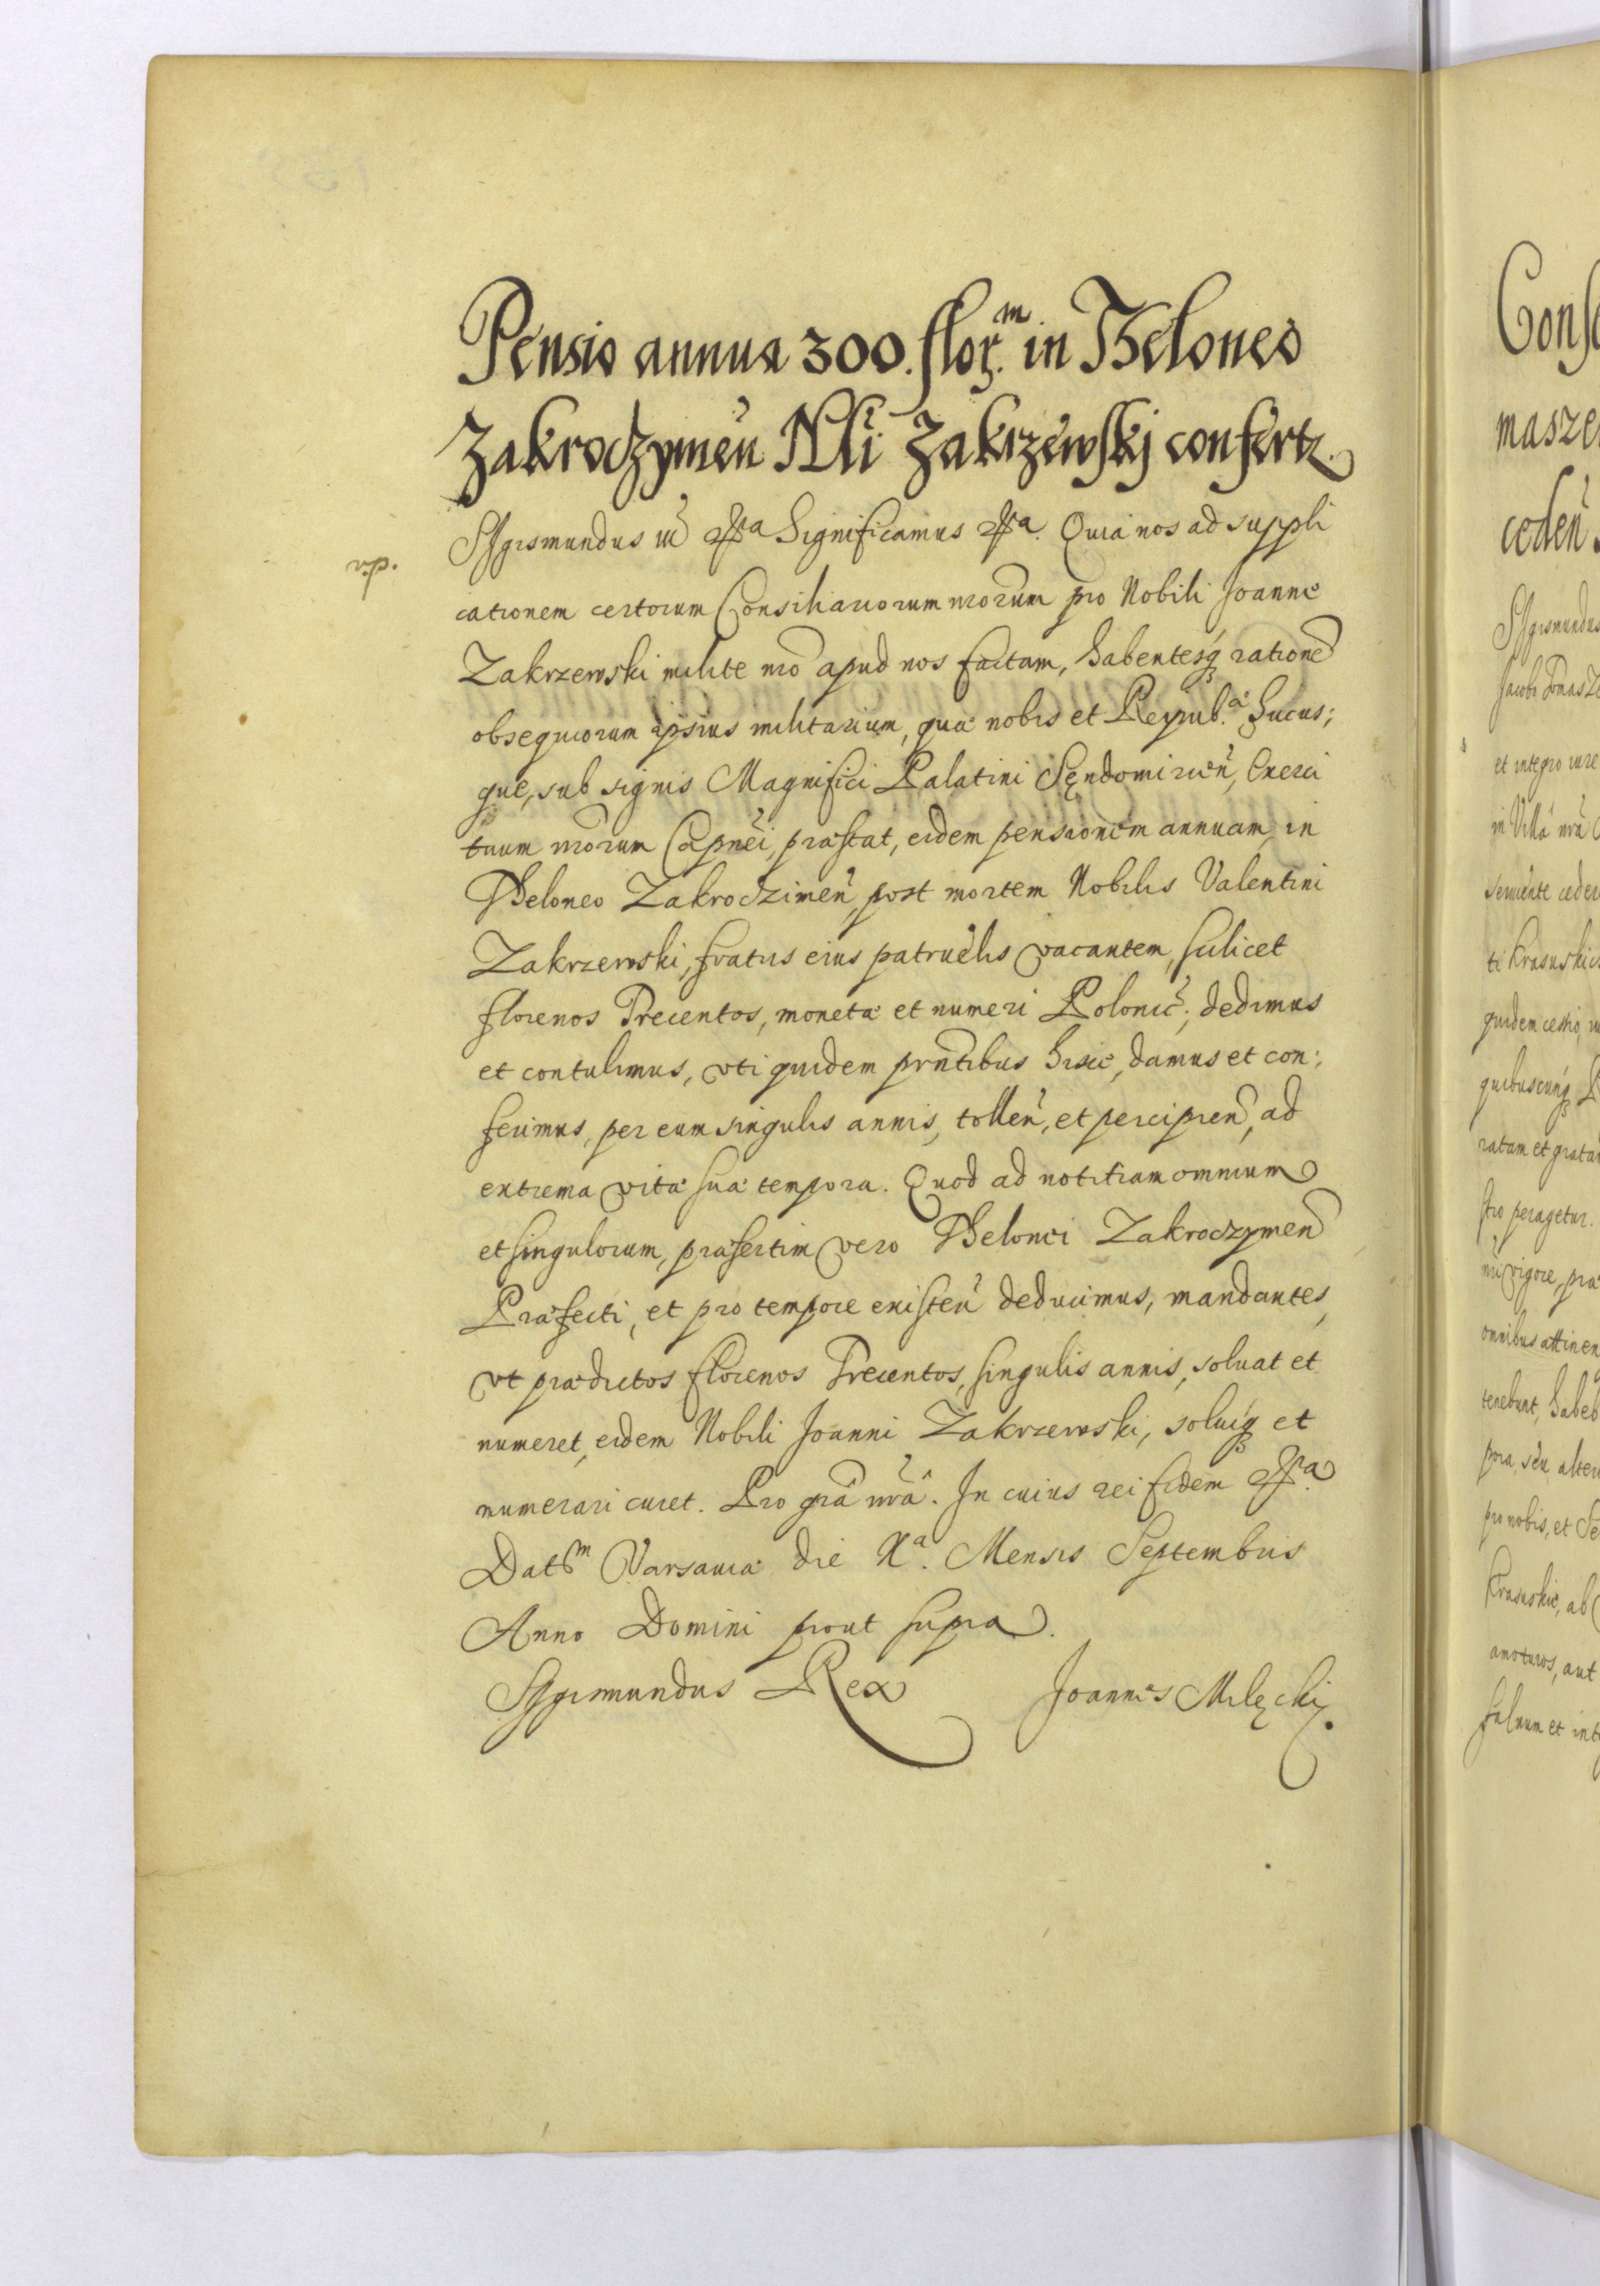 Pensio annua 300. flor̃m in Theloneo
Zakroczymen̄ Nlĩ Zakrzewskj confert̃.
v.p.
Sigismundus iii &ra Significamus &ra. Quia nos ad suppli
cationem certorum Consiliariorum nr̃orum pro Nobili Joanne
Zakrzewski milite nr̃o apud nos factam, habentesq̃ ratione
obsequiorum ipsius militarium, quæ nobis et Reipub.ᵃᵉ hucus;
que, sub signis Magnifici Palatini Sędomirien̄, Exerci
tuum nr̃orum Capnei, præstat, eidem pensionem annuam in
Theloneo Zakroczimen̄, post mortem Nobilis Valentini
Zakrzewski, fratris eius patruelis vacantem, scilicet
florenos Trecentos, monetæ et numeri Polonic̄; dedimus
et contulimus, vti quidem prñtibus hisce, damus et con:
ferimus, per eum singulis annis, tollen̄, et percipien̄, ad
extrema vitæ suæ tempora. Quod ad notitiam omnium
et singulorum, præsertim vero Thelonei Zakroczymen̄
Præfecti, et pro tempore existen̄ deducimus, mandantes,
vt prædictos florenos Trecentos, singulis annis, soluat et
numeret, eidem Nobili Joanni Zakrzewski, soluiq̃ et
numerari curet. Pro grã nr̃a. In cuius rei fidem &ra.
Datm Varsauiæ die Xa. Mensis Septembris
Anno Domini prout supra.
Sigismundus Rex Joannes Mlęcki.
Conse
masze
ceden̄
Sigismundus
Jacobi Tomas
et integro iure
in Villa nr̃a
seruiente ceder
ti Krasuskic
quidem cessio
quibuscunq̃
ratam et grata
stro peragetur.
vigore, præ
omnibus attinen
tenebunt, habeb
pora, seu alter
pro nobis, et Se
Krasuskie, ab
amoturos, aut
saluum et int